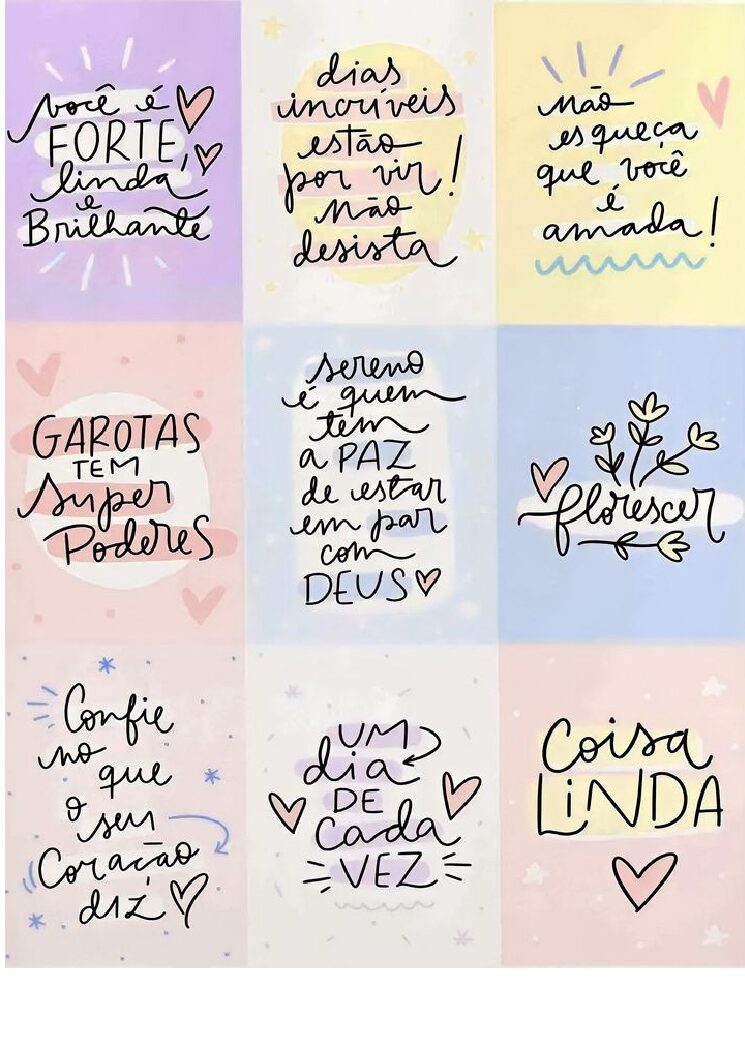 você é
FORTE,
linda
e
Brilhante
dias
incríveis
estão
por vir!
não
desista
não
esqueça
que você
é
amada!
GAROTAS
TEM
Super
Poderes
sereno
é quem
tem
a PAZ
de estar
em par
com
DEUS
florescer
Confie
no
que
o
seu
Coração
diz
UM
dia
DE
Cada
VEZ
Coisa
LiNDA